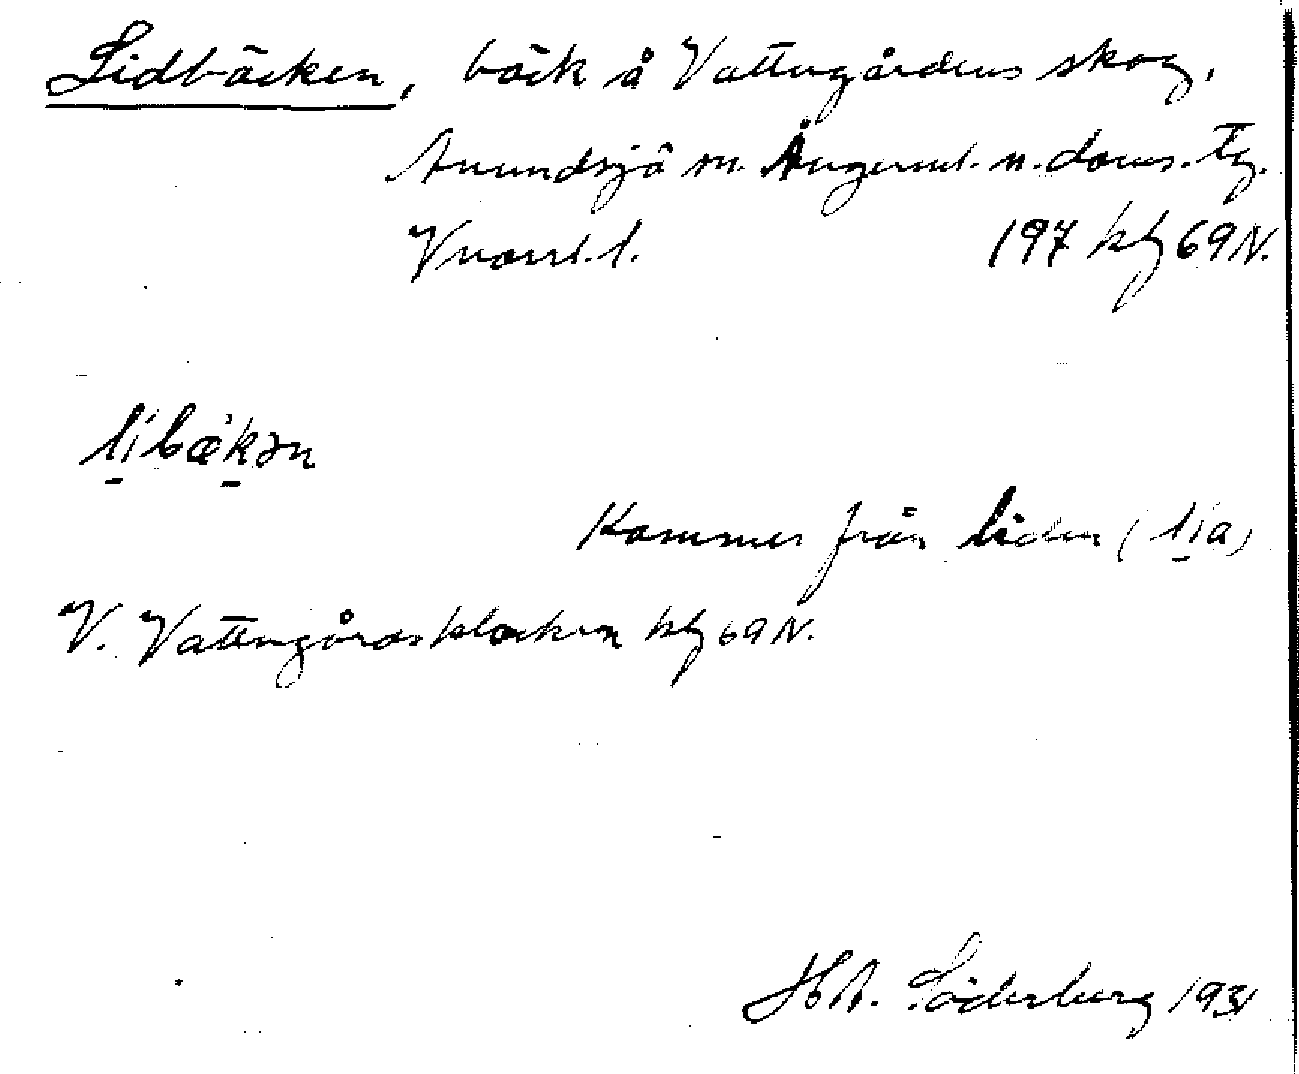 Lidbäcken, bäck å Vattugårdens skog,
Anundsjö sn. Ångerml. n. doms. tg.
Vnorrl. l. 197 kbl 69 N.
li̱bæ̀ḵən
Kommer från liden (li̱a)
V. Vattugårdsklocken kbl 69 N.
H. A. Söderberg 1931